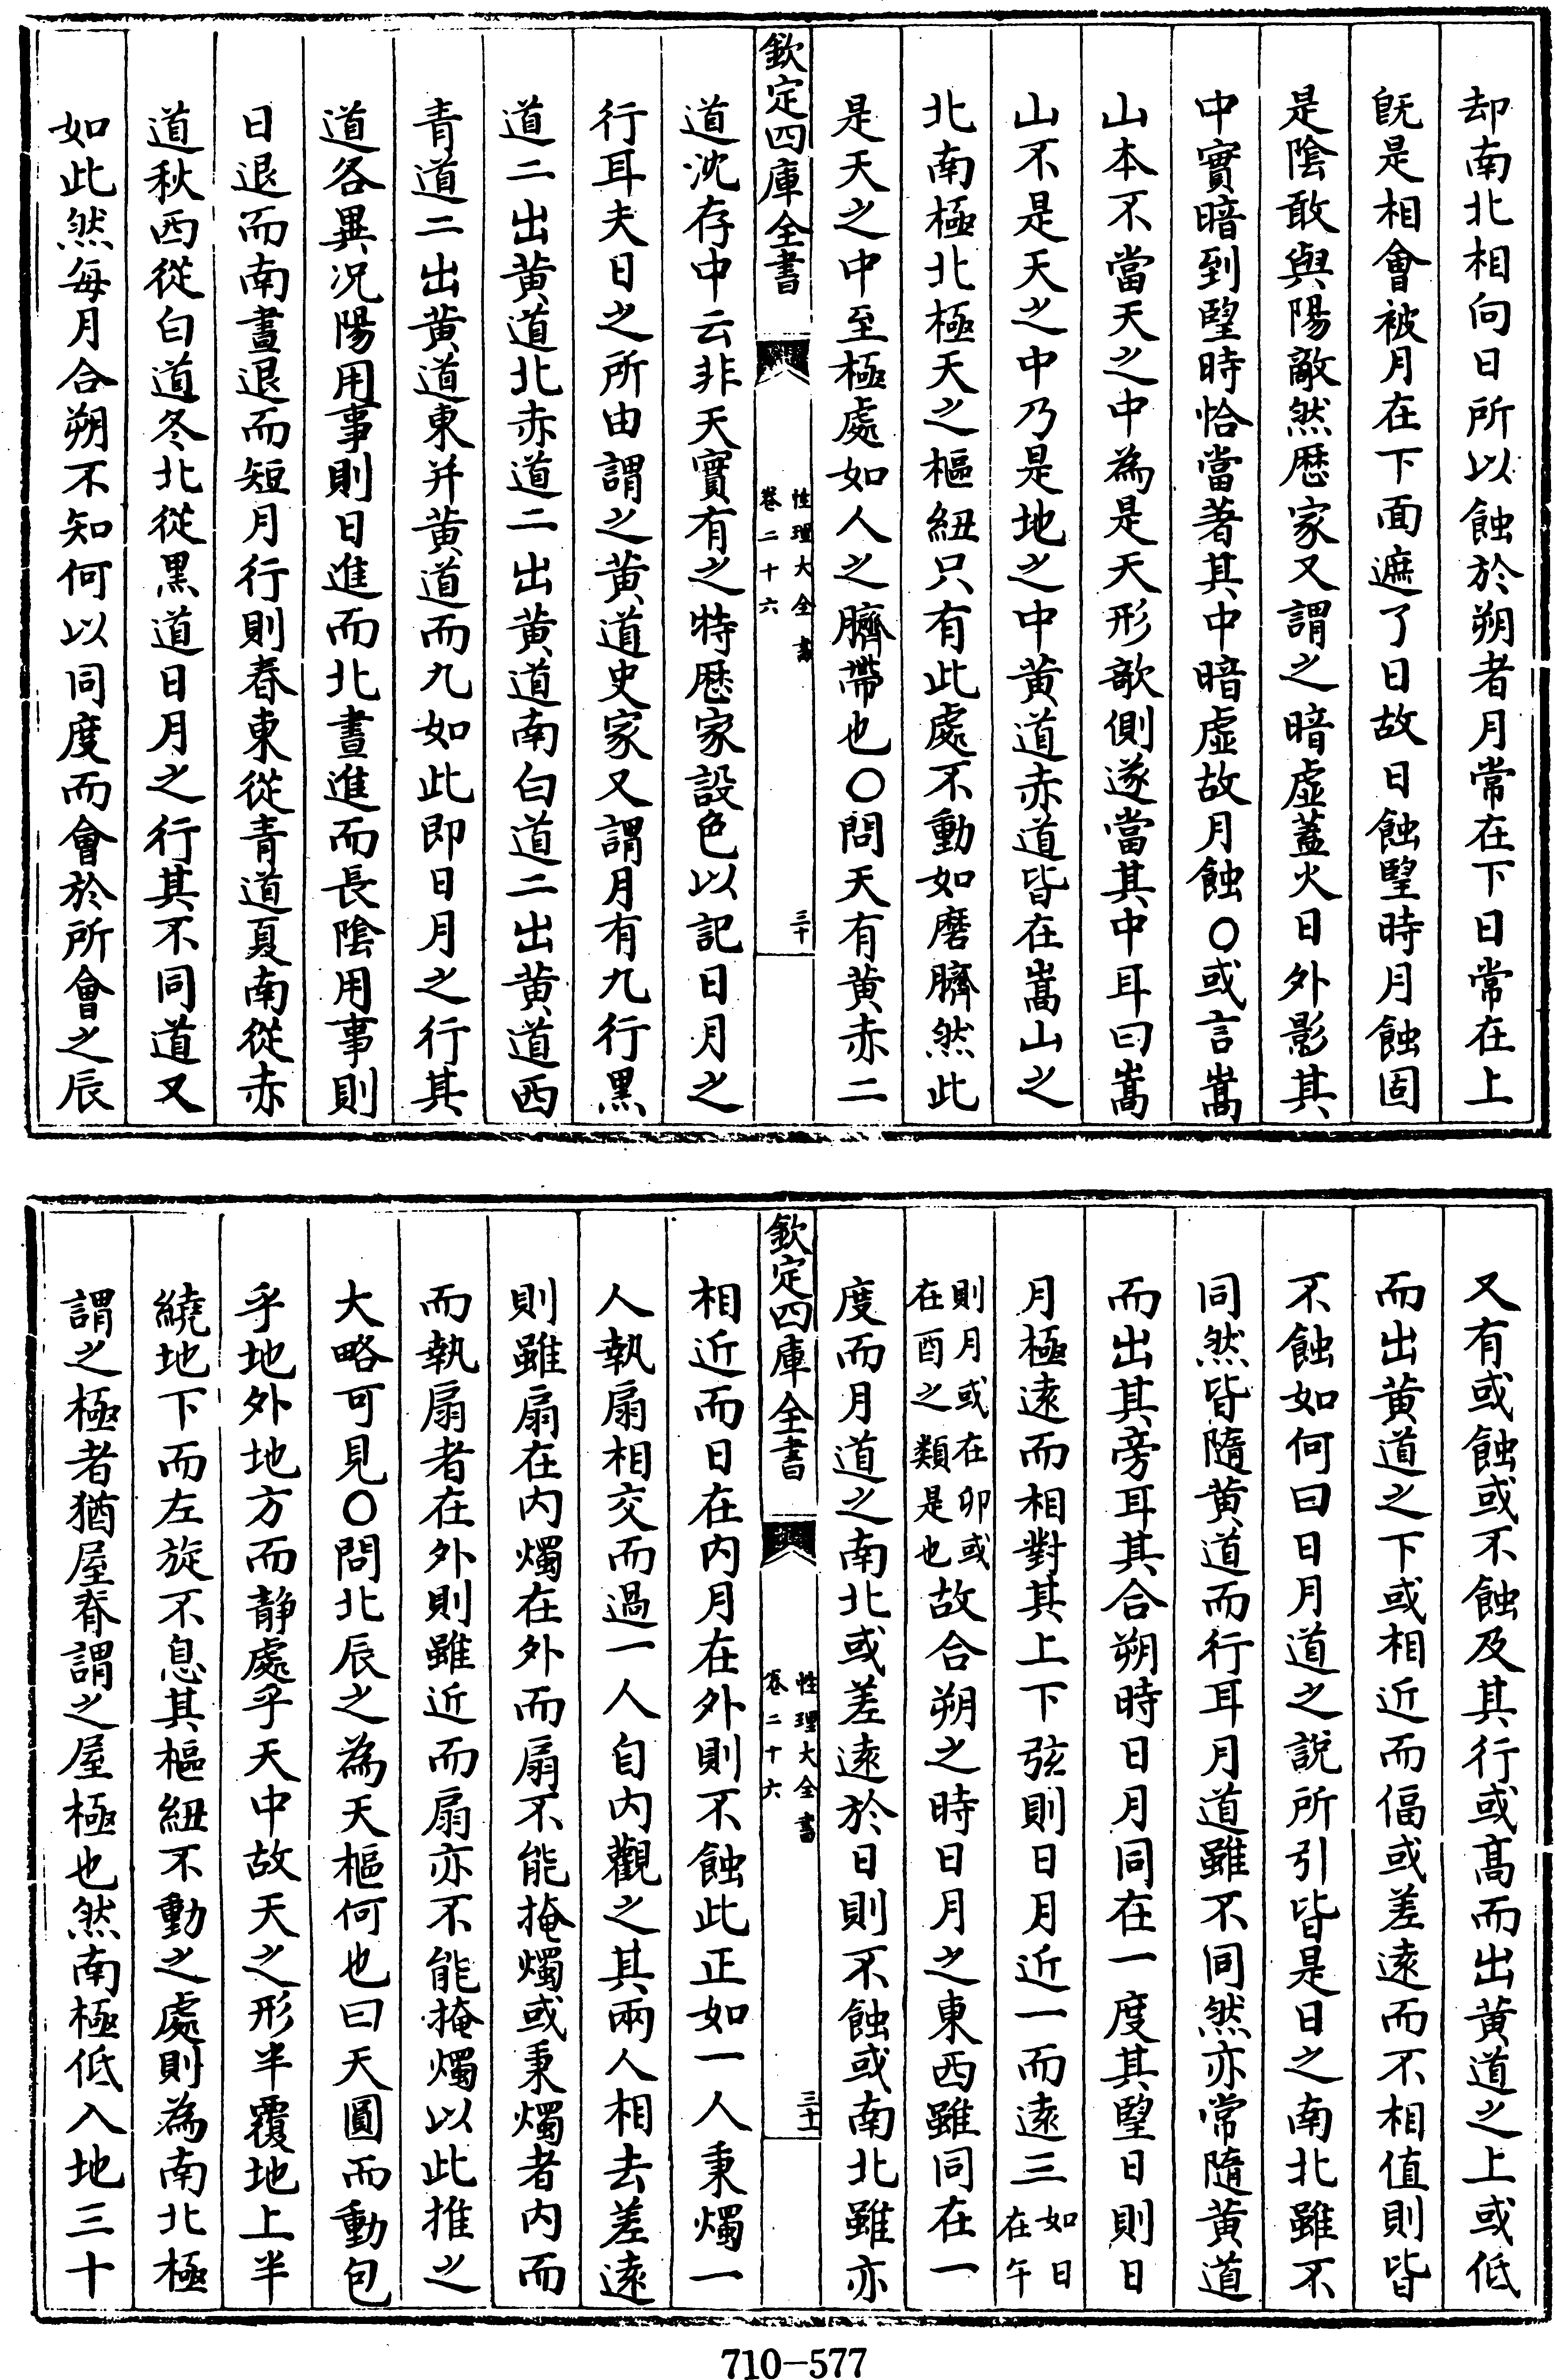 却南北相向日所以蝕於朔者月常在下日常在上
既是相會被月在下面遮了日故日蝕望時月蝕固
是陰敢與陽敵然厯家又謂之暗虚蓋火日外影其
中實暗到望時恰當著其中暗虚故月蝕○或言嵩
山本不當天之中為是天形欹側遂當其中耳曰嵩
山不是天之中乃是地之中黄道赤道皆在嵩山之
北南極北極天之樞紐只有此處不動如磨臍然此
是天之中至極處如人之臍帶也○問天有黄赤二
欽定四庫全書
性理大全書
卷二十六
三十
道沈存中云非天實有之特厯家設色以記日月之
行耳夫日之所由謂之黄道史家又謂月有九行黑
道二出黄道北赤道二出黄道南白道二出黄道西
青道二出黄道東并黄道而九如此即日月之行其
道各異况陽用事則日進而北晝進而長陰用事則
日退而南晝退而短月行則春東從青道夏南從赤
道秋西從白道冬北從黑道日月之行其不同道又
如此然每月合朔不知何以同度而會於所會之辰
又有或蝕或不蝕及其行或髙而出黄道之上或低
而出黄道之下或相近而偪或差逺而不相值則皆
不蝕如何曰日月道之說所引皆是日之南北雖不
同然皆隨黄道而行耳月道雖不同然亦常隨黄道
而出其旁耳其合朔時日月同在一度其望日則日
月極逺而相對其上下弦則日月近一而逺三如日在午
則月或在卯或在酉之類是也故合朔之時日月之東西雖同在一
度而月道之南北或差逺於日則不蝕或南北雖亦
欽定四庫全書
性理大全書
卷二十六
三十一
相近而日在内月在外則不蝕此正如一人秉燭一
人執扇相交而過一人自内觀之其兩人相去差逺
則雖扇在内燭在外而扇不能掩燭或秉燭者内而
而執扇者在外則雖近而扇亦不能掩燭以此推之
大略可見○問北辰之為天樞何也曰天圓而動包
乎地外地方而静處乎天中故天之形半覆地上半
繞地下而左旋不息其樞紐不動之處則為南北極
謂之極者猶屋脊謂之屋極也然南極低入地三十
710-577